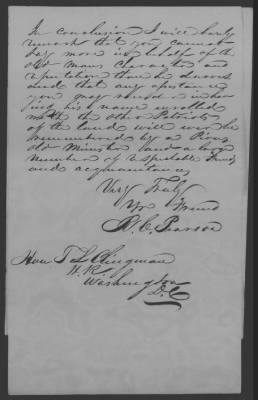 In conclusion I will barely
remark that you cannot
say more in behalf of the
old mans character and
reputation than he deserves
and that any assistance
you may render in hav-
ing his name enrolled
with the other Patriots
of the land will ever be
remembered by a Pious
old Minister and a large
number of respectable friends
and acquaintances
Very Truly
Yr Friend
R. C. Pearson
Hon T L Clingman
H. R.
Washington
D. C.